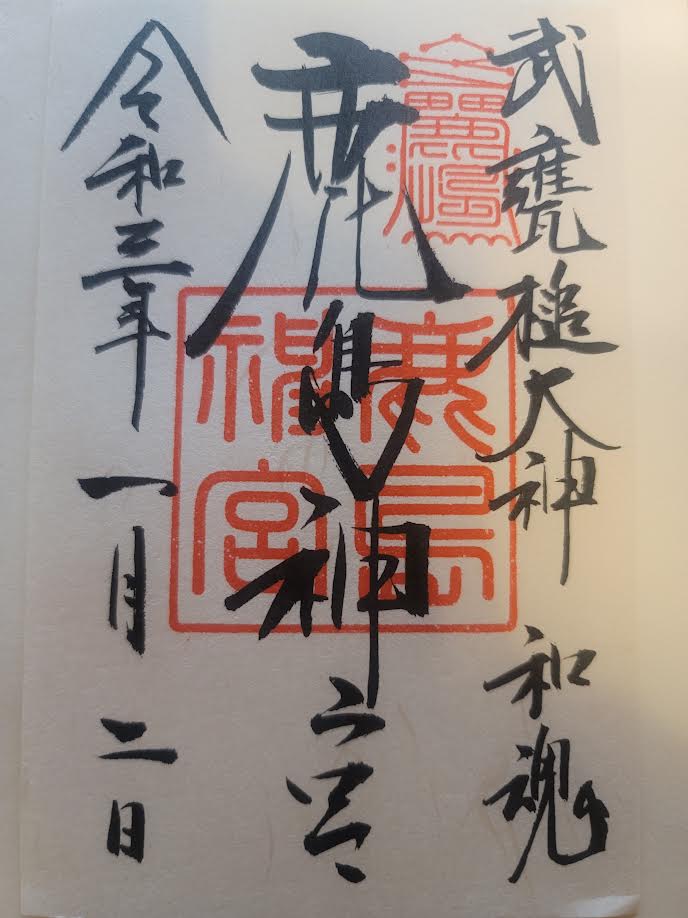 武甕槌大神 和魂
鹿嶋神宮
鹿島神宮
令和三年 一月 二日